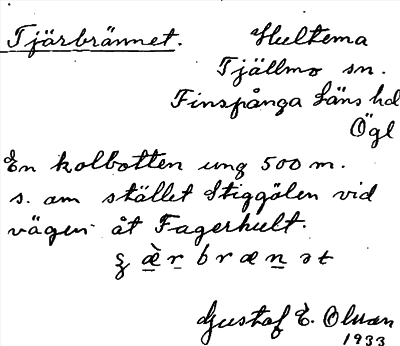 Tjärbrännet. Hultema
Tjällmo sn.
Finspånga läns hd
Ögl
En kolbotten ung 500 m.
s. om stället Stiggölen vid
vägen åt Fagerhult.
Gustaf E. Olsson
1933